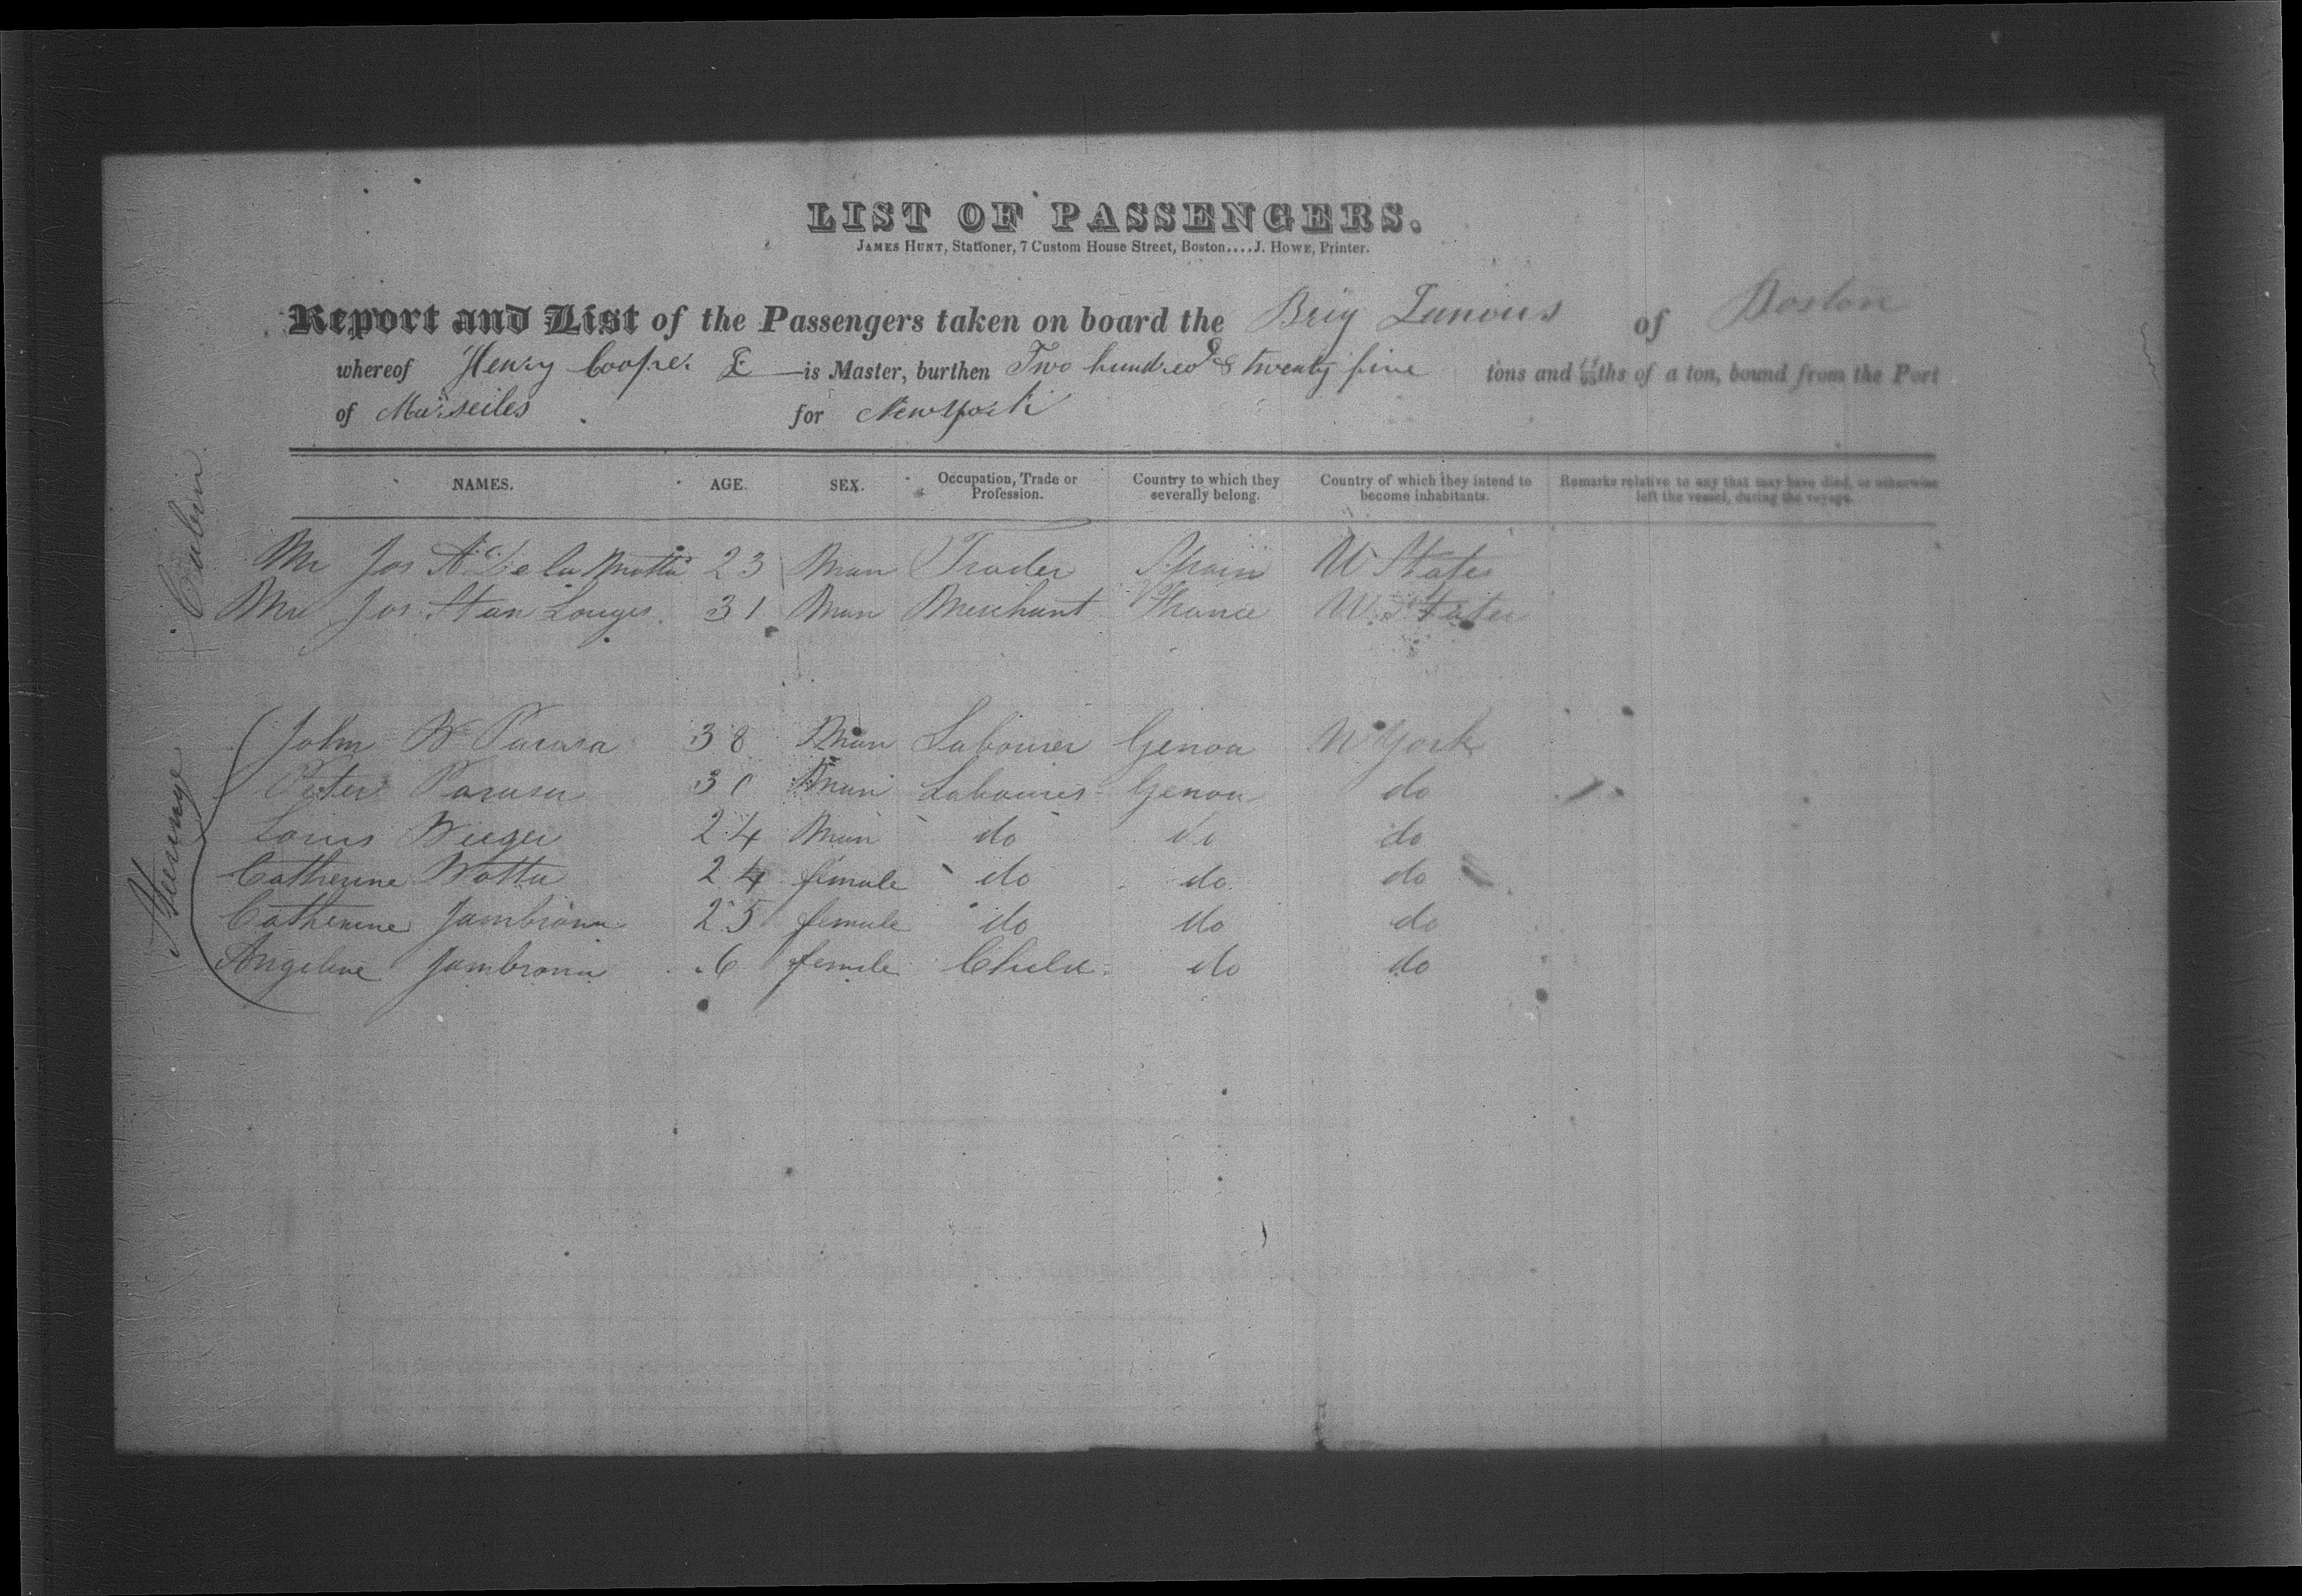 LIST OF PASSENGERS.
JAMES HUNT, Stationer, 7 Custom House Street, Boston....J. HOWE, Printer.
Report and List of the Passengers taken on board the Brig Junious of Boston
whereof Henry Cooper is Master, burthen Two hundred & twenty five tons and ths of a ton, bound from the Port
of Marseiles for New York
NAMES. AGE. SEX. Occupation, Trade or Profession. Country to which they severally belong. Country of which they intend to become inhabitants. Remarks relative to any that may have died, or otherwise left the vessel, during the voyage.
Cabin
Mr Jos A De la Motta 23 Man Trader Spain U States
Mr Jos 31 Man Merchant France U States
Steerage
John B Parasa 38 Man Labourer Genoa N York
Peter Parasa 30 Man Labourer Genoa do
Louis 24 Man do do do
Catherine Botta 24 female do do do
Catherine 25 female do do do
Angeline 6 female Child do do